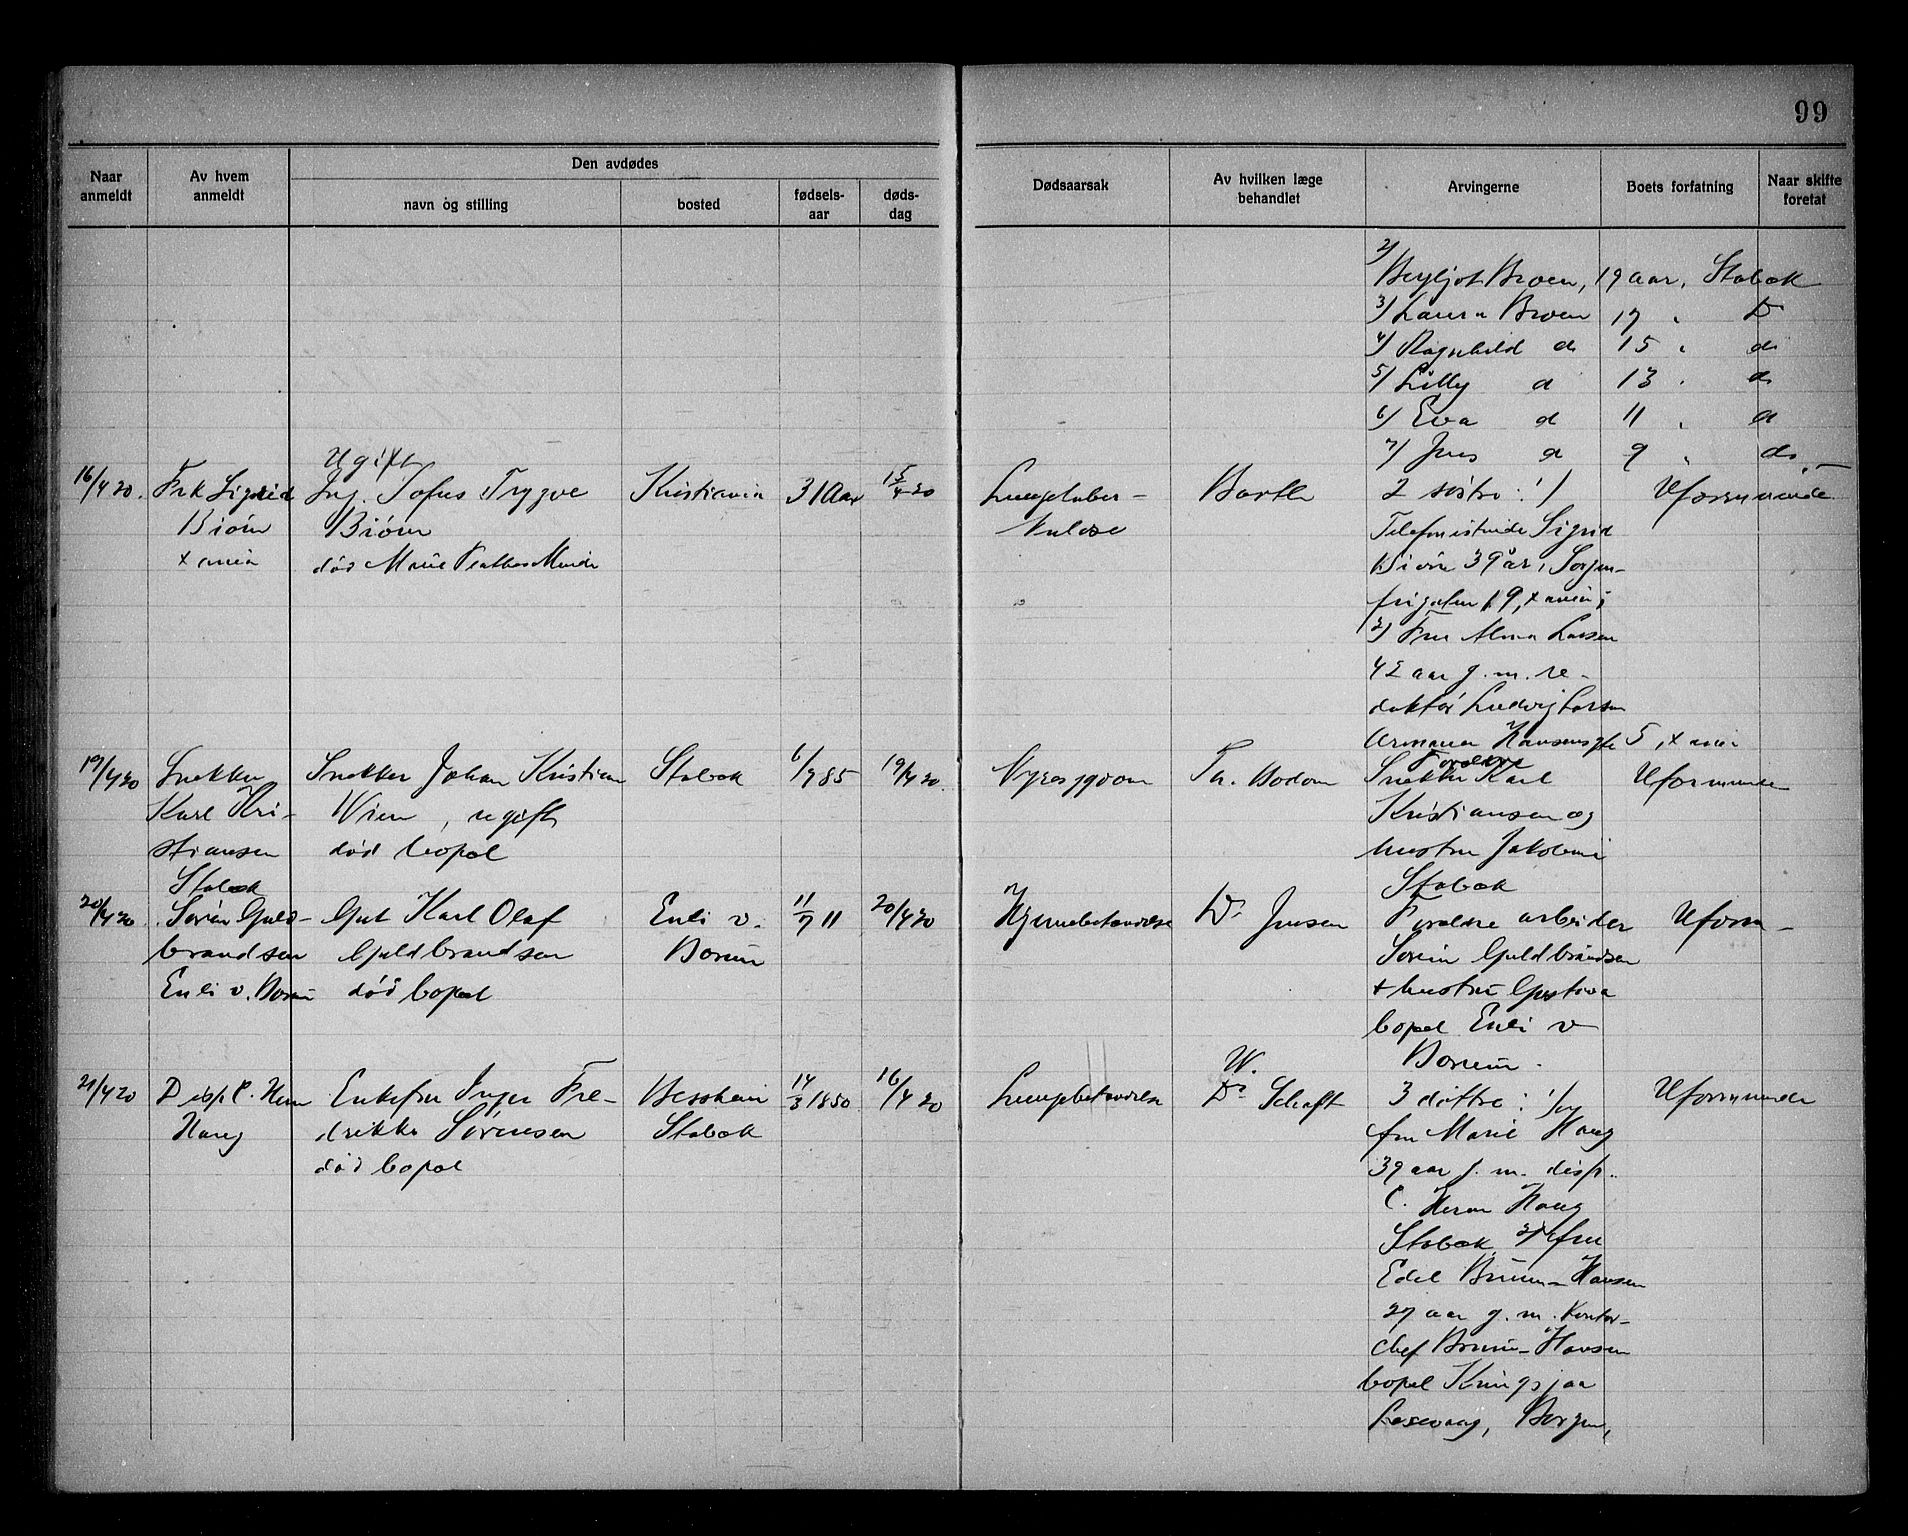 99
Naar anmeldt
Av hvem anmeldt
Den avdødes
navn og stilling
bosted
fødsels-aar
døds-dag
Dødsaarsak
Av hvilken læge behandlet
Arvingerne
Boets forfatning
Naar skifte foretat
2/
Bergljot Broen, 19 aar, Stabæk
3/ Laura Broen 17 " D
4/ Ragnhild do 15 " do
5/ Lilly d 13 " do
6/ Eva d 11 " d
7/ Jens d 9 " do
16/4 20.
Frk Sigrid
Biørn
x ania
Ugift
Ing. Tofus Trygve
Biørn
død Marie
Kristiania
31 Aar
15/4 20
Lungetuber-
kulose
Barth
2 søstre: 1)
Telefonistinde Sigrid
Biørn 39 år, Sorgen-
frigaten 19, x ania;
2) Fru Alma Larsen
42 aar g. m. re-
daktør Ludvig Larsen
Armauer Hansensgt 5, x ania
Uformuende
19/4 20
Snekker
Karl Kri-
stiansen
Stabæk
Snekker Johan Kristian
Wien, ugift
død bopæl
Stabæk
6/7 85
19/4 20.
Nyresygdom
Th. Bodom
Forældre
Snekker Karl
Kristiansen og
hustru Jakobine
Stabæk
Uformuende
20/4 20
Søren Guld-
brandsen
Enli v. Bærum
Gut Karl Olaf
Guldbrandsen
død bopæl
Enli v.
Bærum
11/7 11
20/4 20
Hjernebetændelse
Dr Jensen
Forældre arbeider
Søren Guldbrandsen
+ hustru Gustava
bopæl Enli v
Bærum.
Uform-
21/4 20
Disp. C. Herm
Haug
Enkefru Inger Fre-
drikke Sørensen
død bopæl
Bessheim
Stabæk
14/3 1850
16/4 20
Lungebetændelse
W.
Dr Schaft
3 døttre: 1/
fru Marie Haug
39 aar g. m. disp.
C. Herm Haug
Stabæk 2/ fru
Edel Bruun-Hansen
27 aar g. m. Kontor-
chef Bruun-Hansen
bopæl Kringsjaa
Laxevaag, Bergen,
Uformuende